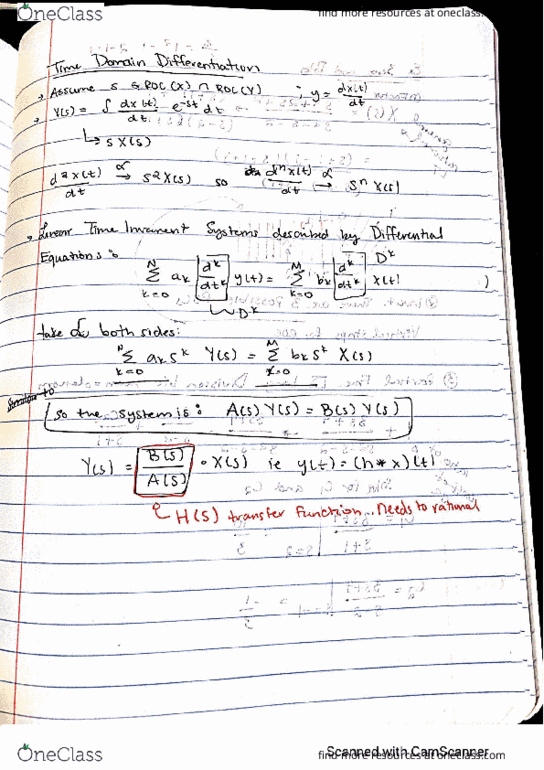 OneClass
find more resources at oneclass.com
Time Domain Differentiation
Assume s ∈ ROC(X) ∩ ROC(Y) : y = dx(t)/dt
Y(s) = ∫ dx(t)/dt e^-st dt
↳ sX(s)
d²x(t)/dt →ℒ s²X(s) so dⁿx(t)/dt →ℒ sⁿ X(s)
Linear Time Invariant Systems described by Differential
Equations:
N Σ k=0 ak [d^k/dt^k] y(t) = M Σ k=0 bk [d^k/dt^k] D^k x(t)
↳ D^k
take ℒ both sides:
N Σ k=0 ak s^k Y(s) = M Σ k=0 bk s^k X(s)
so the system is: A(s) Y(s) = B(s) Y(s)
Y(s) = [B(s)/A(s)] • X(s) ie y(t) = (h * x)(t)
H(s) transfer function.. Needs to rational
OneClass
Scanned with CamScanner
find more resources at oneclass.com